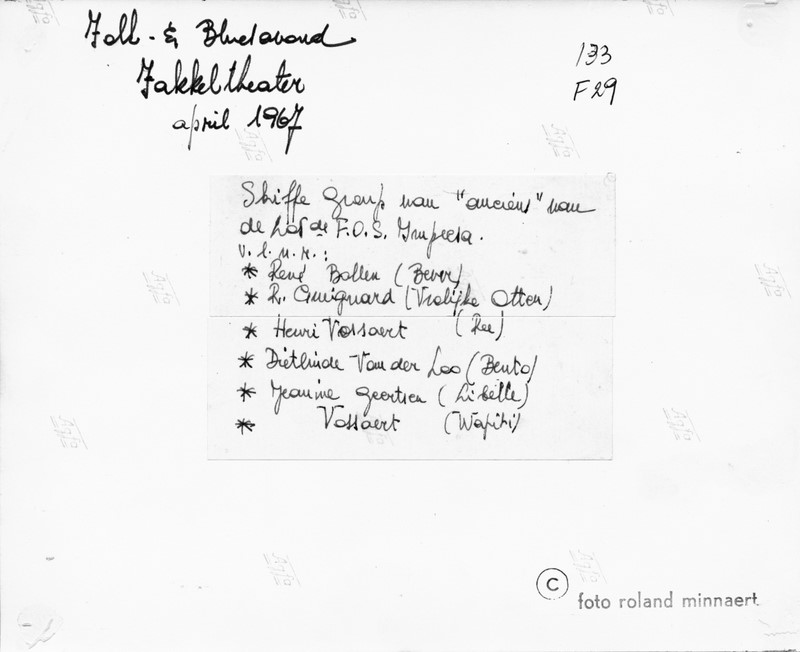 Foll - & Bluesavond
Fakkeltheater
april 1967
133
F29
Skiffe Group van "anciens" van
de 40ste F.O.S. Impeesa.
v.l.n.r.:
* René Bollen (Bever)
* R. Guignard (Vrolijke Otter)
* Henri Vossaert (Ree)
* Diethinde Van der Loo (Bento)
* Jeanine Geertsen (Libelle)
* Vossaert (Wapiti)
© foto roland minnaert.